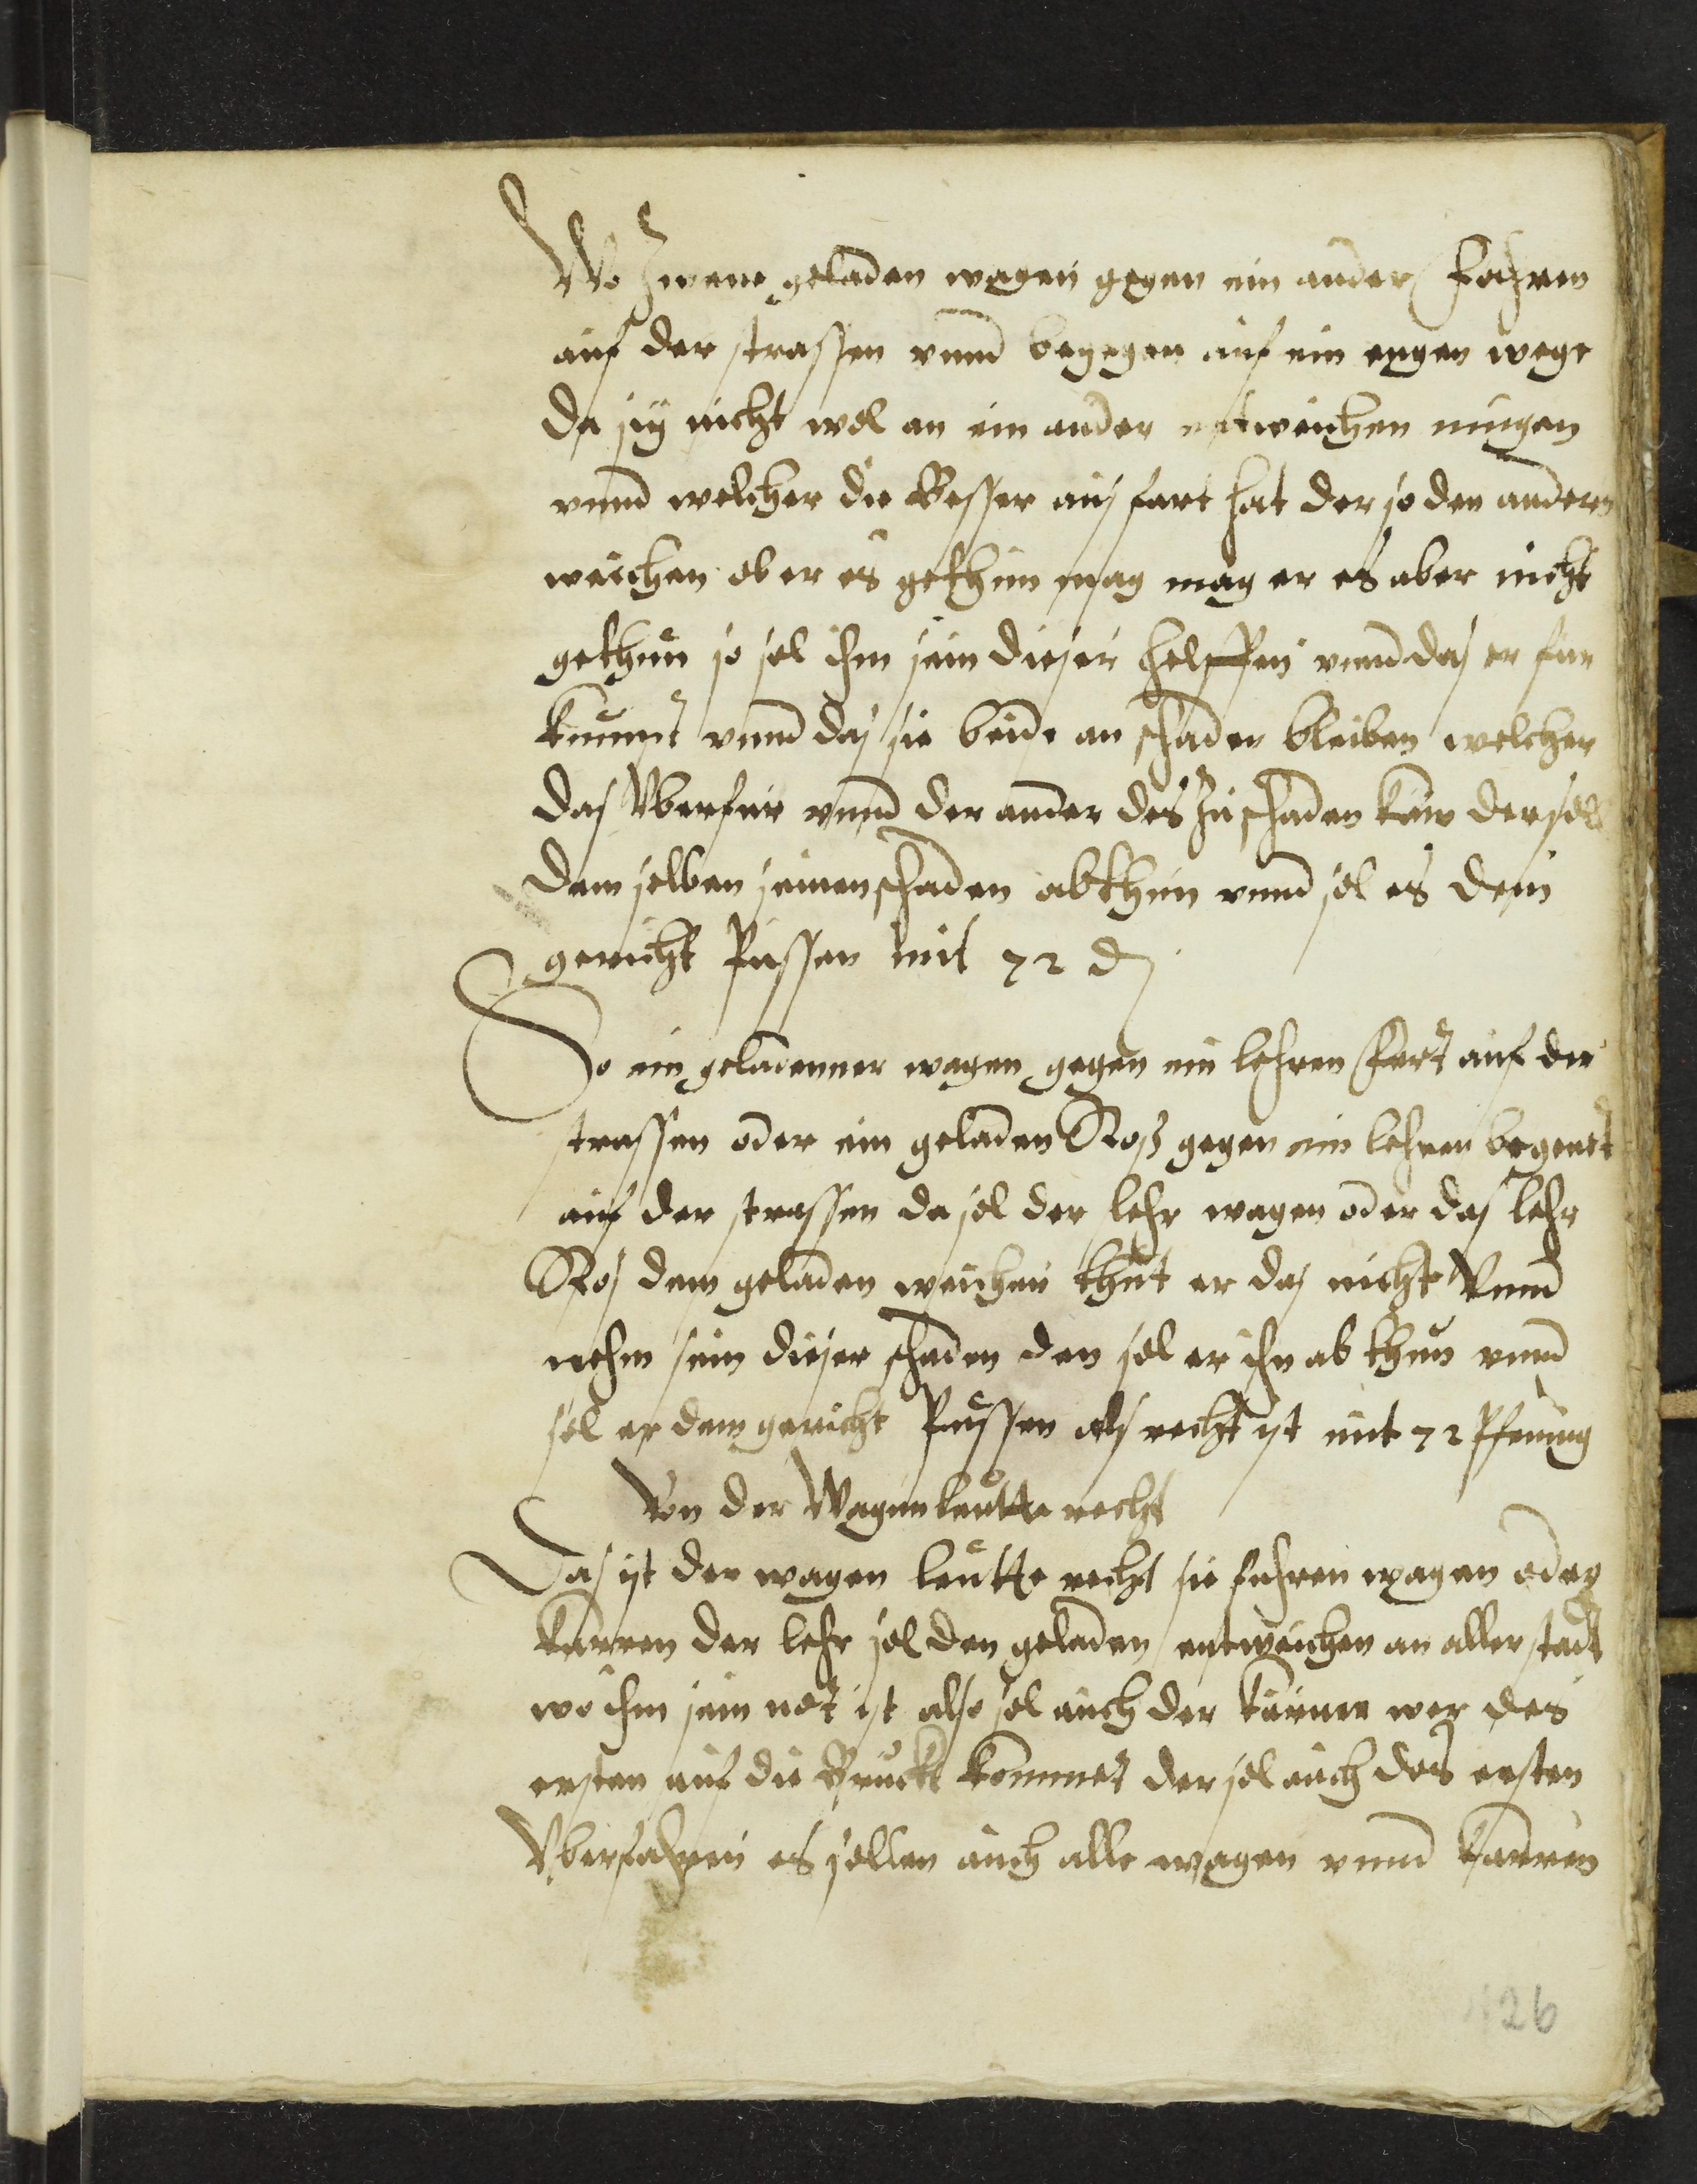 Wo Zwene geladen wagen gegen ein ander fahren
auf der strassen vnnd begegen auf ein engen wege
da sÿ nicht wol an ein ander entweichen mugen
vnnd welcher die Besser aus fart hat der so den andern
weichen ob er es gethun mag mag er es aber nicht
gethun so sol ihm sein dieser helffen vnnd das er fur
kumpt vnnd das sie beide an schaden bleiben welcher
das Vberfur vnnd der ander des zu schaden kam der sol
dem selben seinen schaden abthun vnnd sol es dem
gericht Pussen mit 72 d
So ein geladenner wagen gegen ein lehren fert auf der
strassen oder ein geladen Roß gegen ein lehren begent
auf der strassen da sol der lehr wagen oder das lehr
Ros dem geladen weichen thut er das nicht Vnnd
nehm sein dieser schaden den sol er ihn ab thun vnnd
sol er dem gericht Pussen als recht ist mit 72 Pfennig
Von der Wagenleutte recht
Das ist der wagen leutte recht sie fuhren wagen oder
karren der lehr sol den geladen entweichen an aller stadt
wo ihm sein not ist also sol auch der karner wer des
ersten auf die Bruck kommet der sol auch des ersten
Vberfahren es sollen auch alle wagen vnnd karren
126